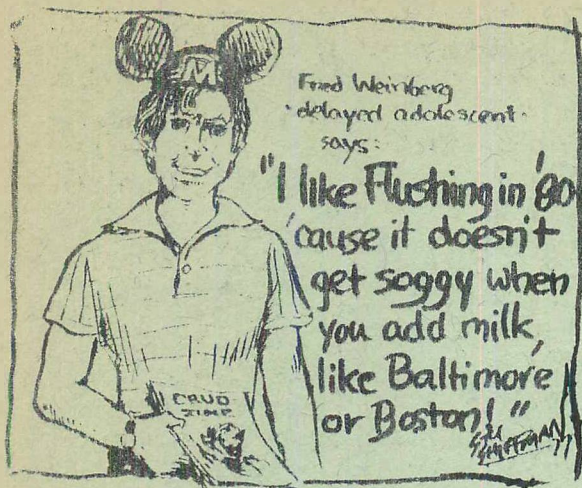 M
Fred Weinberg
·delayed adolescent·
says:
"I like Flushing in '80
'cause it doesn't
get soggy when
you add milk,
like Baltimore
or Boston!"
CRUD
STU
SHIFFMAN